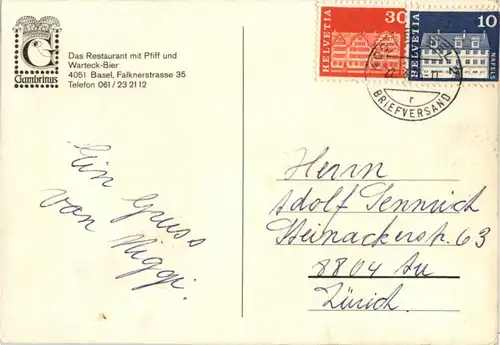 G
Gambrinus
Das Restaurant mit Pfiff und
Warteck-Bier
4051 Basel, Falknerstrasse 35
Telefon 061/23 21 12
HELVETIA
30
HELVETIA
10
NÄFELS
BRIEFVERSAND
r
Ein Gruss
von Niggi.
Herrn
Adolf Jennrich
Steinackerstr. 63
8804 Au
Zürich.